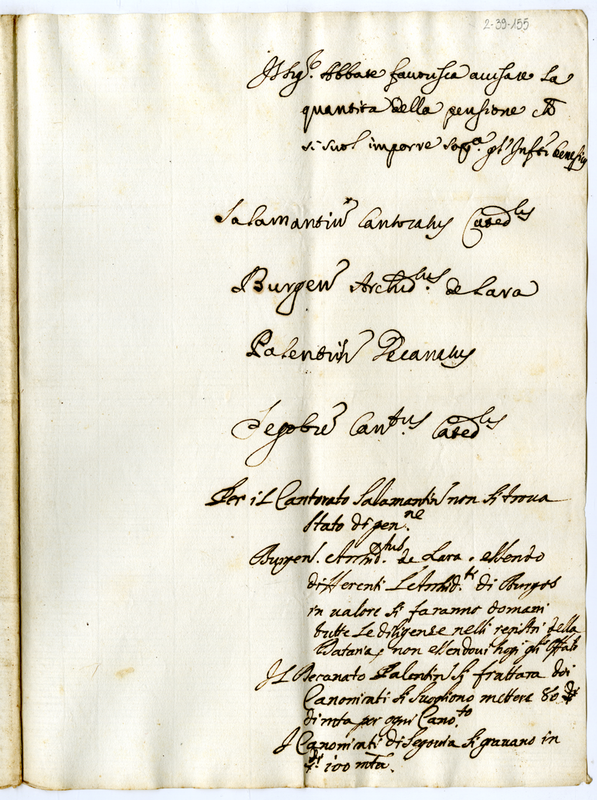 2-39-155
Il Sig.r Abbate favorisca avvisare la
quantità della pensione ch
si suol imporre sop.a gl'Infr̃i benefiz
Salamantin Cantoratus Cated.lis
Burgen Archid.tus de Lara
Palentin Decanatus
Segobien Can.tus Cated.lis
Per il Cantorato Salamantin non si trova
stato di pen.ne
Burgen. Archid.tus de Lara. essendo
differenti L'Archid.ti di Burgos
in valore si faranno domani
tutte le diligenze nelli registri della
Dataria, non essendovi hogi gl'Offali
Il Decanato Palentin si trattara doi
Canonicati si sogliono mettere 80
di mta per ogni Cano.to
I Canonicati di Segovia si gravano in
100 mta.